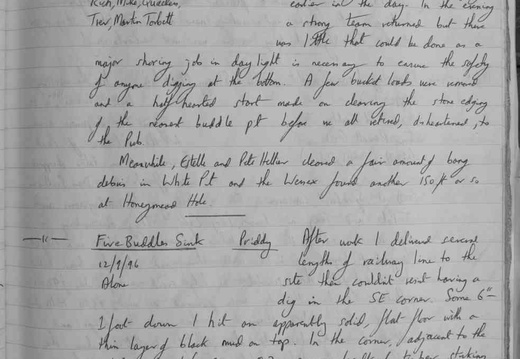 Rich, Mike, earlier in the day. In the evening
Trev, Martin Torbett a strong team returned but there
was little that could be done as a
major shoring job in daylight is necessary to ensure the safety
of anyone digging at the bottom. A few bucket loads were removed
and a half hearted start made on cleaning the stone edging
of the nearest buddle pit before we all retired, disheartened, to
the Pub.
Meanwhile, Estelle and Pete Hellier cleared a fair amount of bang
debris in White Pit and the Wessex found another 150ft or so
at Honeymead Hole
Five Buddles Sink Priddy After work I delivered several
12/9/96 lengths of railway line to the
Alone site then couldn't resist having a
dig in the SE corner. Some 6"-
1 foot down I hit an apparently solid, flat floor with a
thin layer of black mud on top. In the corner, adjacent to the